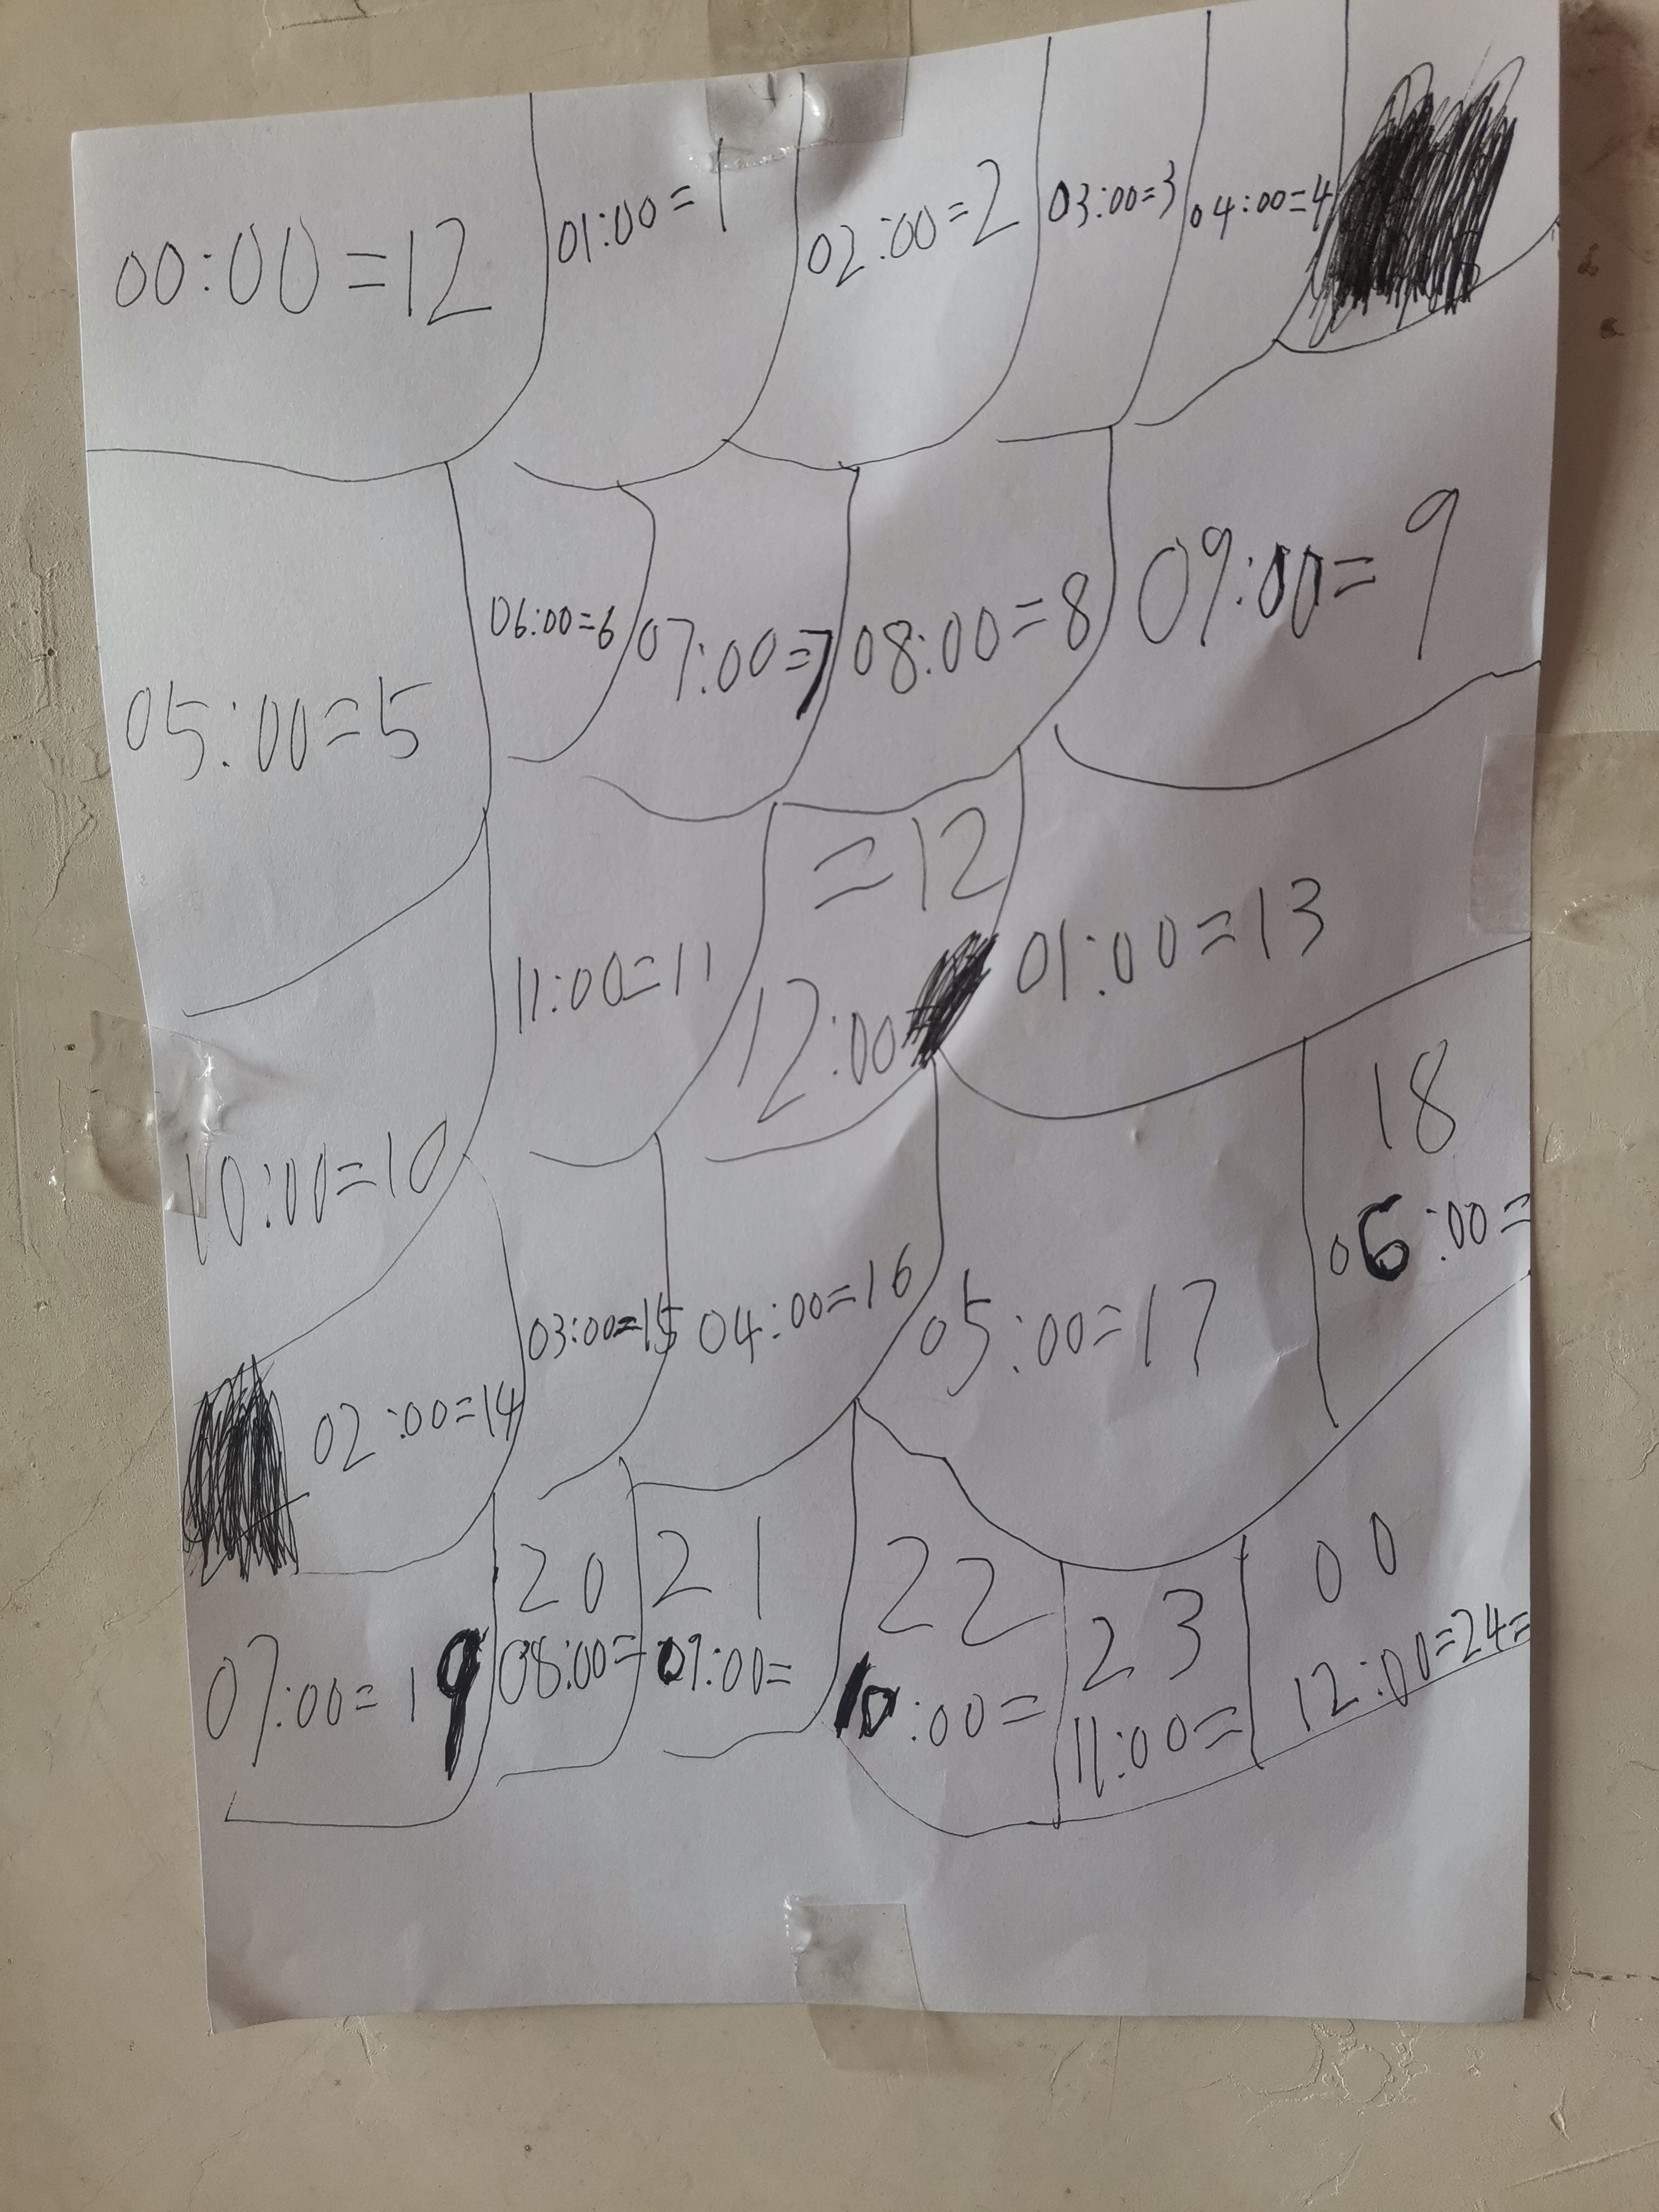 00:00=12
01:00=1
02:00=2
03:00=3
04:00=4
05:00=5
06:00=6
07:00=7
08:00=8
09:00=9
10:00=10
11:00=11
=12
12:00
01:00=13
02:00=14
03:00=15
04:00=16
05:00=17
18
06:00=
07:00=19
20
08:00=
21
09:00=
22
10:00=
23
11:00=
00
12:00=24=